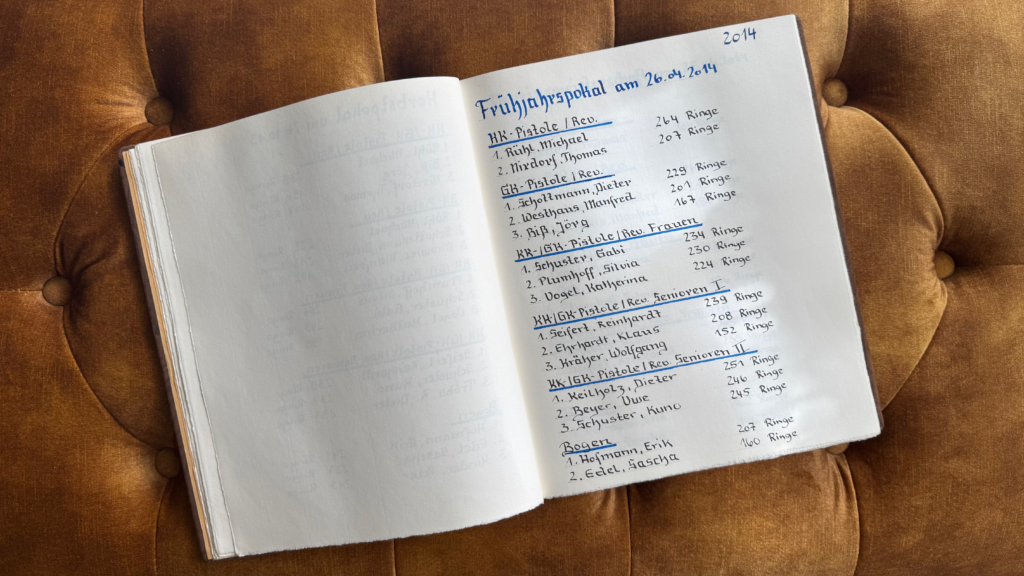 2014
Frühjahrspokal am 26.04.2014
KK-Pistole/Rev.
1. Rühl, Michael 264 Ringe
2. Nixdorf, Thomas 207 Ringe
GK-Pistole/Rev.
1. Schottmann, Dieter 229 Ringe
2. Westhaus, Manfred 201 Ringe
3. Biß, Jörg 167 Ringe
KK/GK-Pistole/Rev. Frauen
1. Schuster, Gabi 234 Ringe
2. Plumhoff, Silvia 230 Ringe
3. Vogel, Katherina 224 Ringe
KK/GK-Pistole/Rev. Senioren I
1. Seifert, Reinhardt 239 Ringe
2. Ehrhardt, Klaus 208 Ringe
3. Kräher, Wolfgang 152 Ringe
KK/GK-Pistole/Rev. Senioren II
1. Keilholz, Dieter 251 Ringe
2. Beyer, Uwe 246 Ringe
3. Schuster, Kuno 245 Ringe
Bogen
1. Hofmann, Erik 207 Ringe
2. Edel, Sascha 160 Ringe